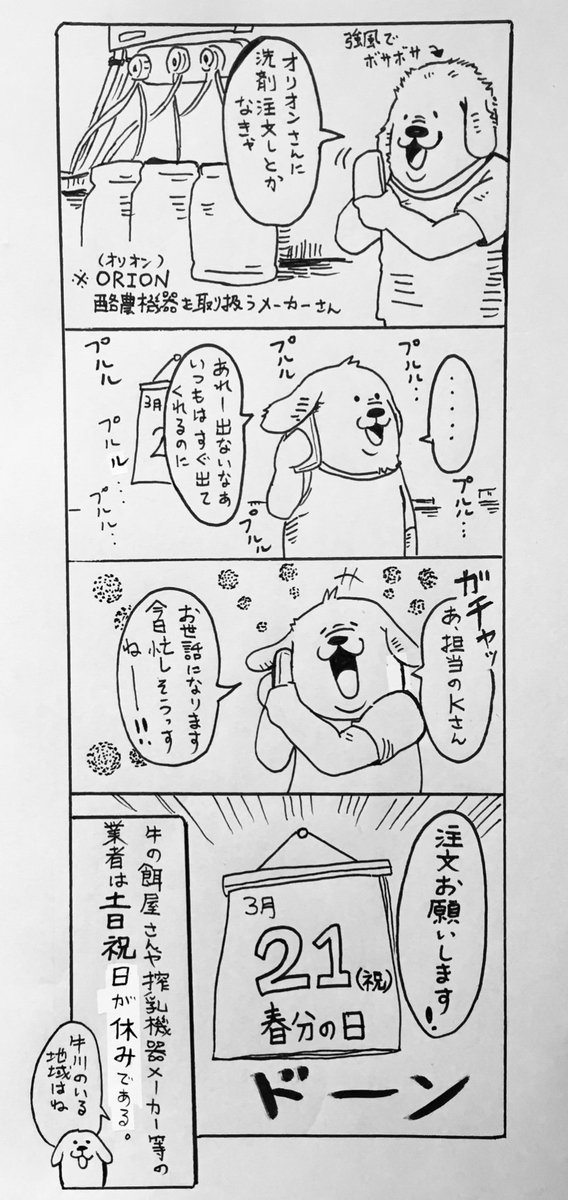 強風で
ボサボサ
オリオンさんに
洗剤注文しとか
なきゃ
(オリオン)
※ORION
酪農機器を取り扱うメーカーさん
・・・・
プルル…
プルル…
プルル
プルル
あれー出ないなぁ
いつもはすぐ出て
くれるのに
3月
2
プルル
プルル…
プルル…
ガチャッ
あ、担当のKさん
お世話になります
今日忙しそうっす
ねーー!!
注文お願いします!
3月
21(祝)
春分の日
ドーン
牛の餌屋さんや搾乳機器メーカー等の
業者は土日祝日が休みである。
牛川のいる
地域はね